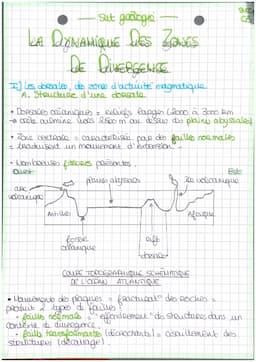 Sut géologie
LA DYNAMIQUE DES ZONES
DE DIVERGENCE
I) Les dorsales, des zones d'activité magmatique
A. Structure d'une dorsale
• Dorsales océaniques = reliefs larges (2000 à 3000 km
→ crête culmine à 2500 m au dessus des plaines abyssales)
• Zone centrale = caractérisée par des failles normales
= traduisent un mouvement d'extension
• Nombreuses fissures présentes.
Ouest
Est
plaines abyssales
île volcanique
arc
volcanique
Antilles
Afrique
fosse
océanique
rift
dorsale
COUPE TOPOGRAPHIQUE SCHÉMATIQUE
DE L'OCÉAN ATLANTIQUE
• Mouvements de plaques = fracturat° des roches =
produit 2 types de failles :
• failles normales = "effondrement" des structures dans un
contexte de divergence.
• failles transformantes (décrochants) = coulissement des
structures (décalage).